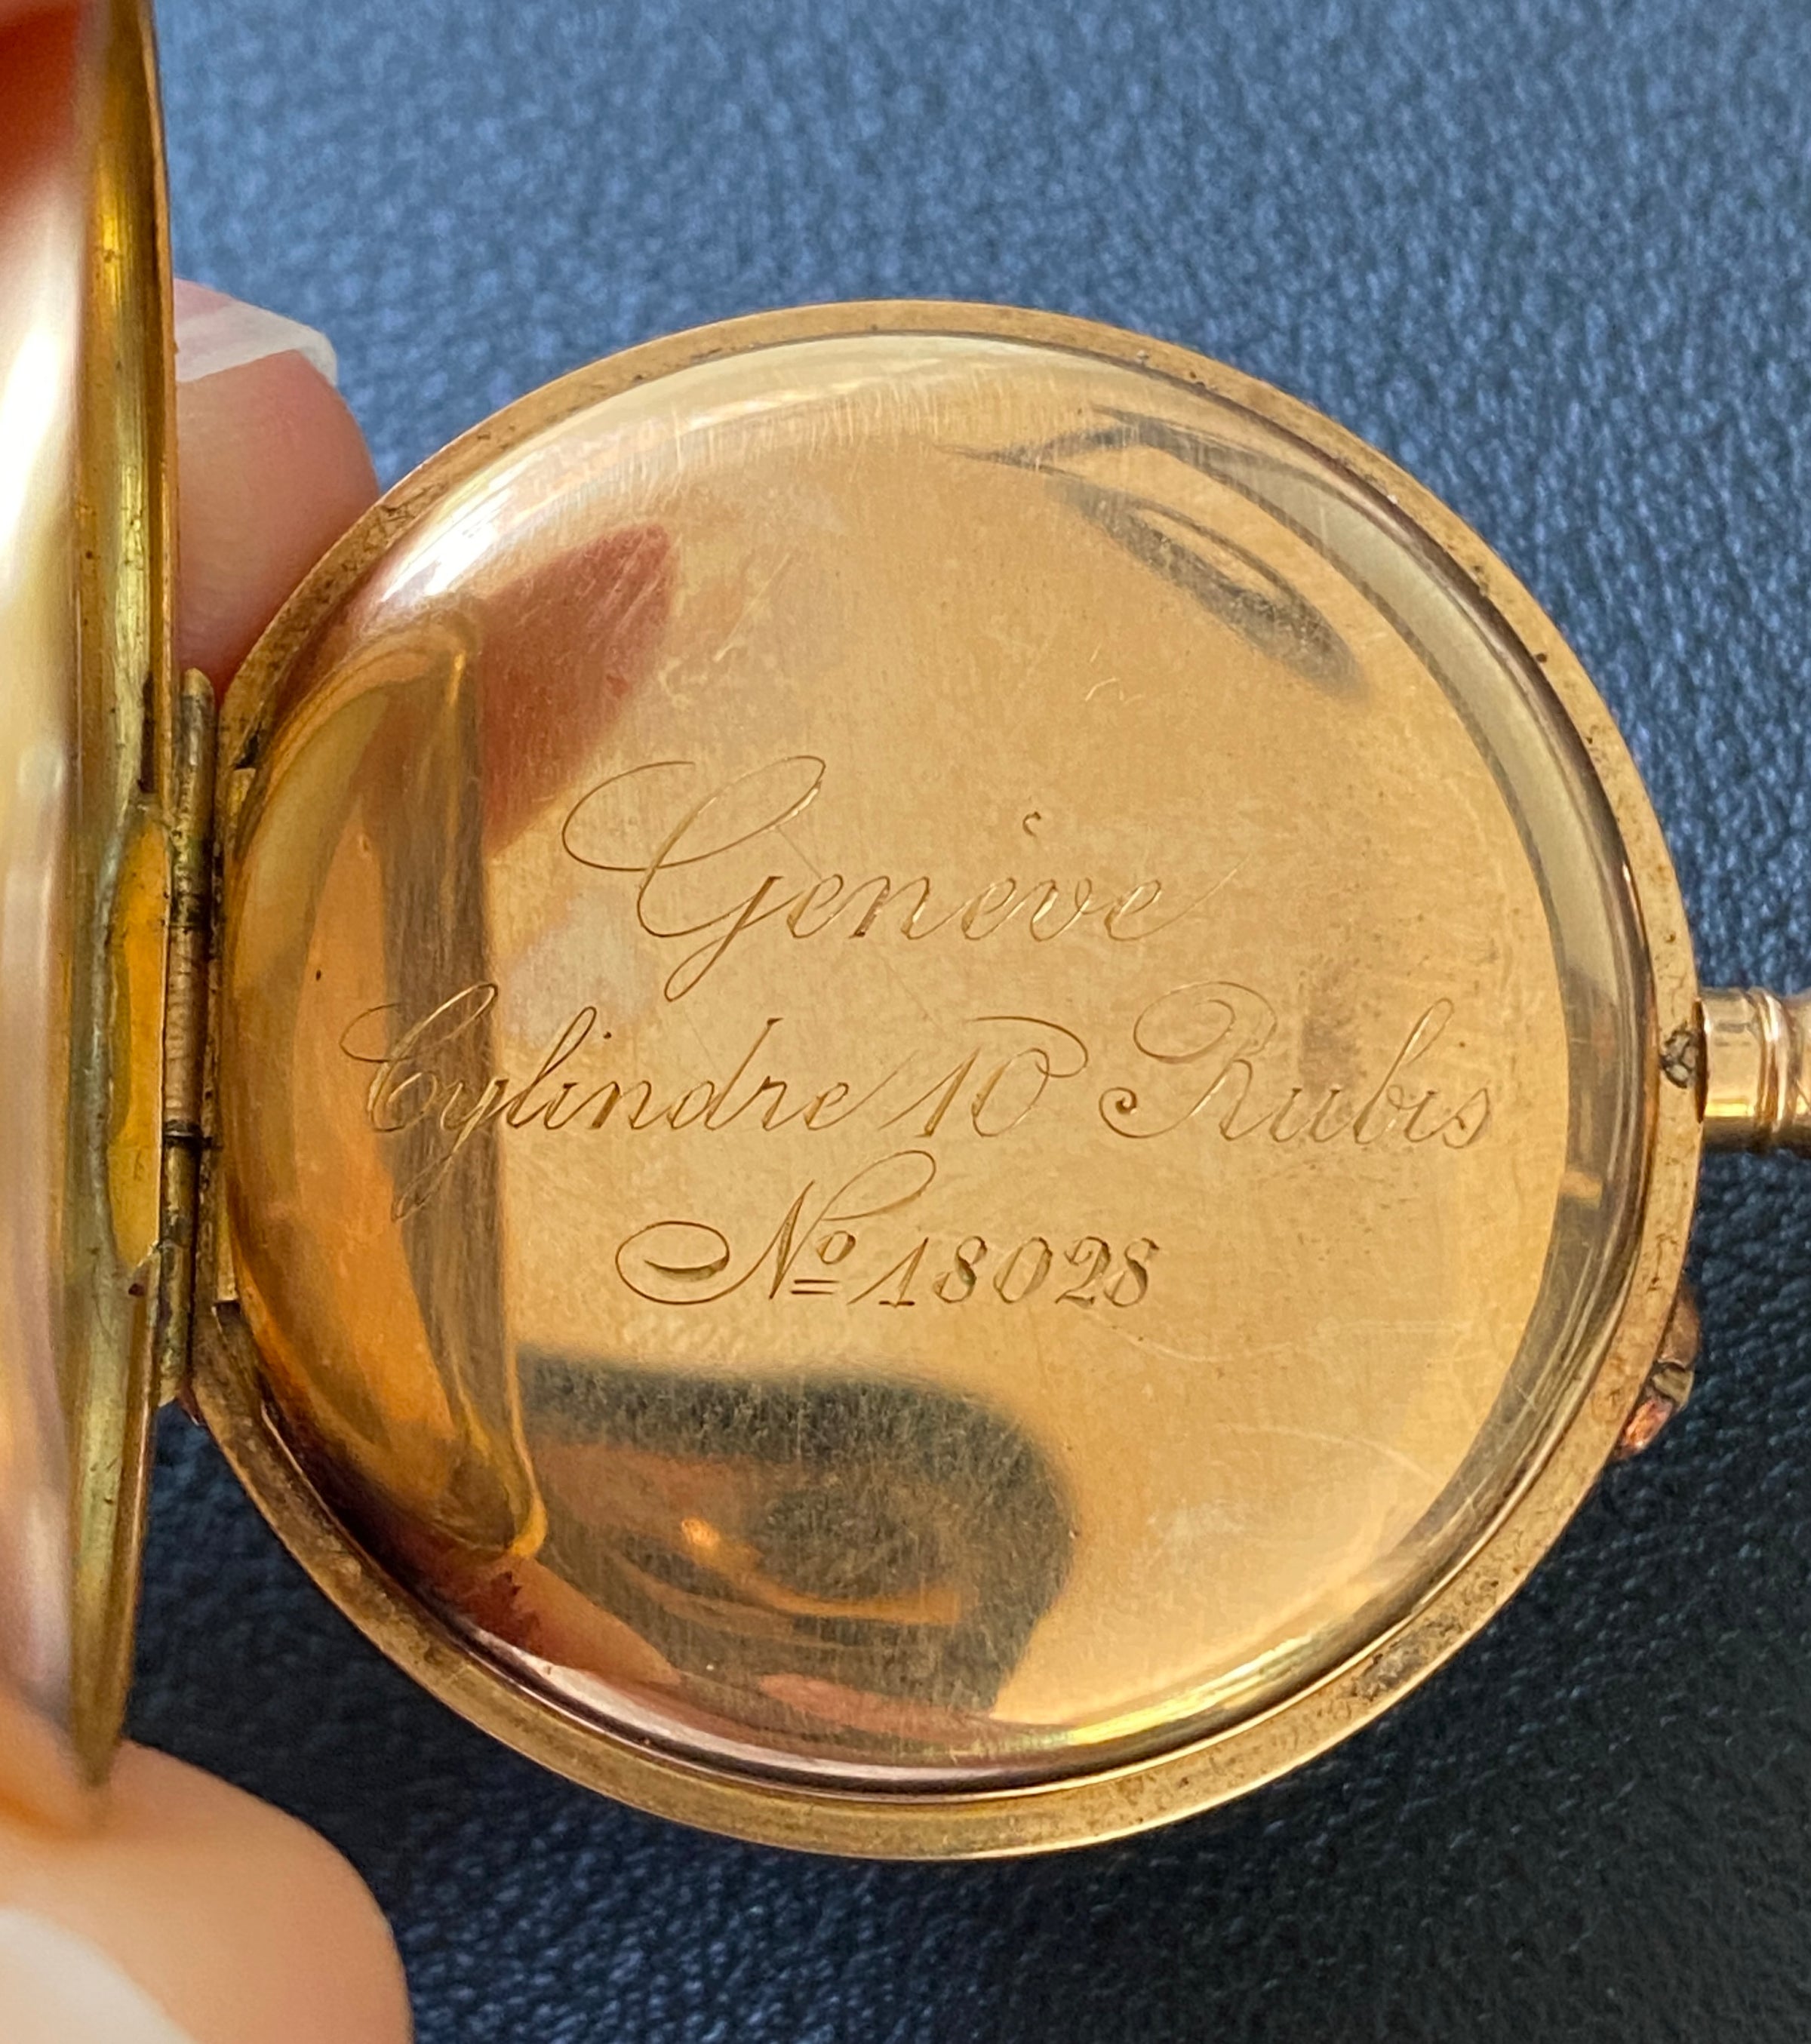 Genève
Cylindre 10 Rubis
No 18028